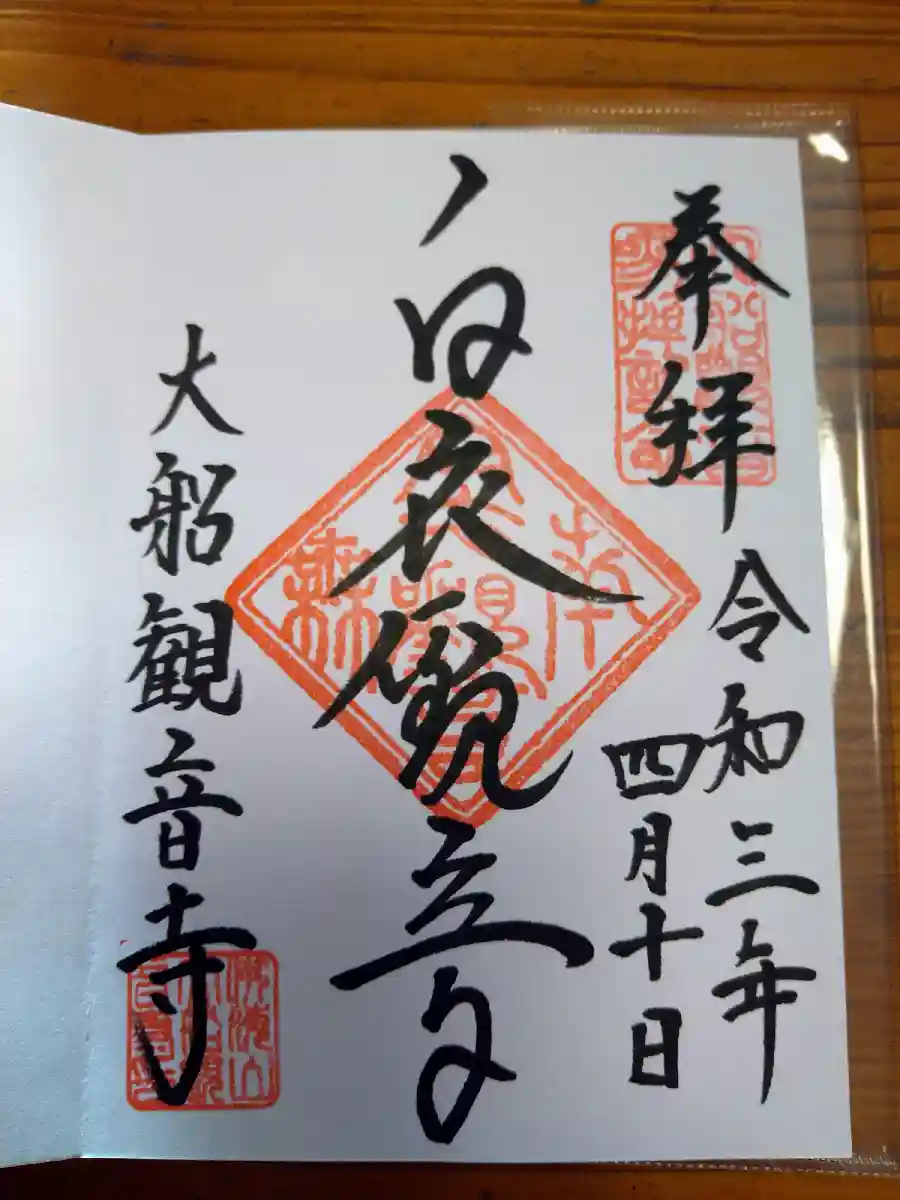 奉拝
令和三年
四月十日
白衣観音
大船観音寺